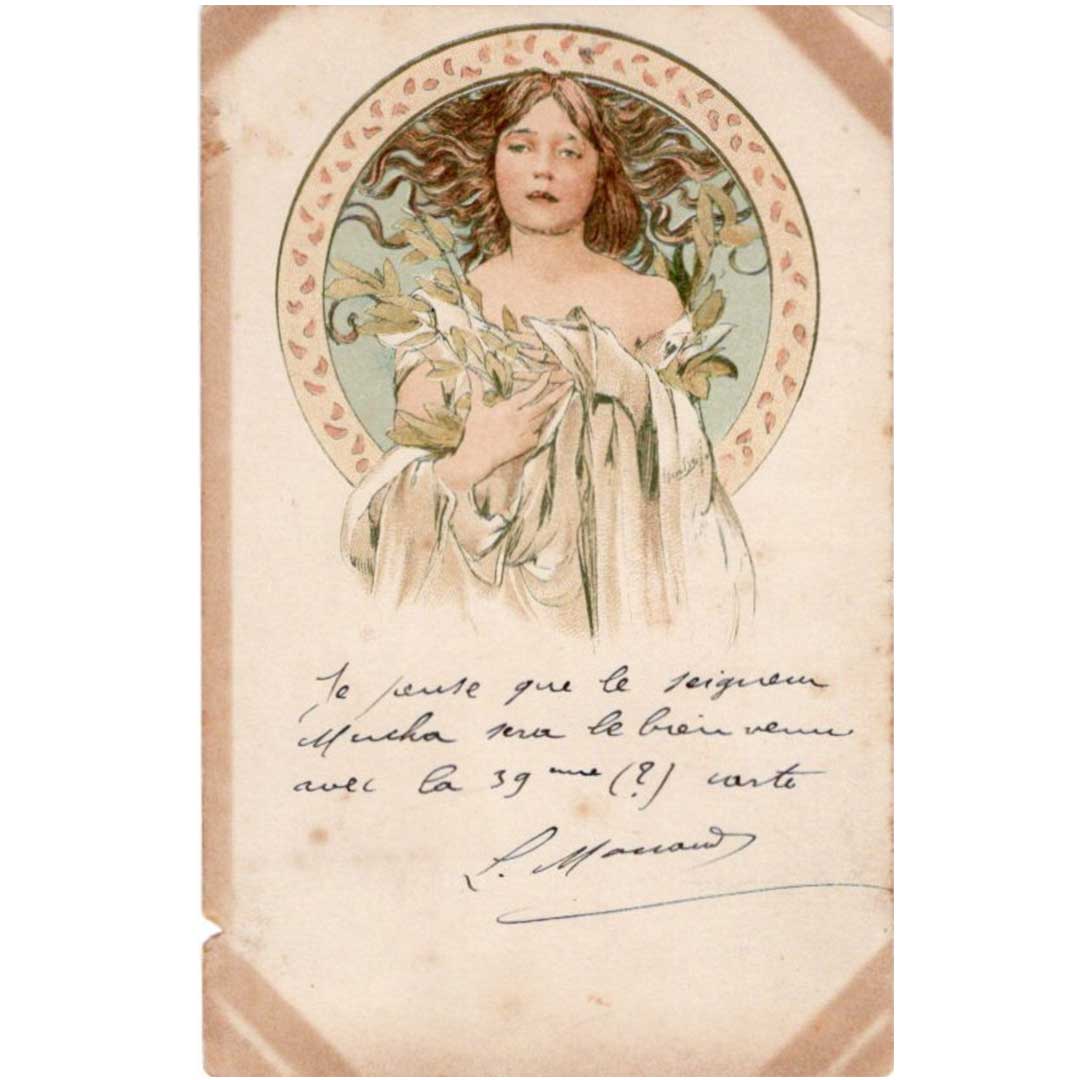 Je pense que le seigneur
Mucha sera le bien venu
avec la 39 eme (?) carte
L.